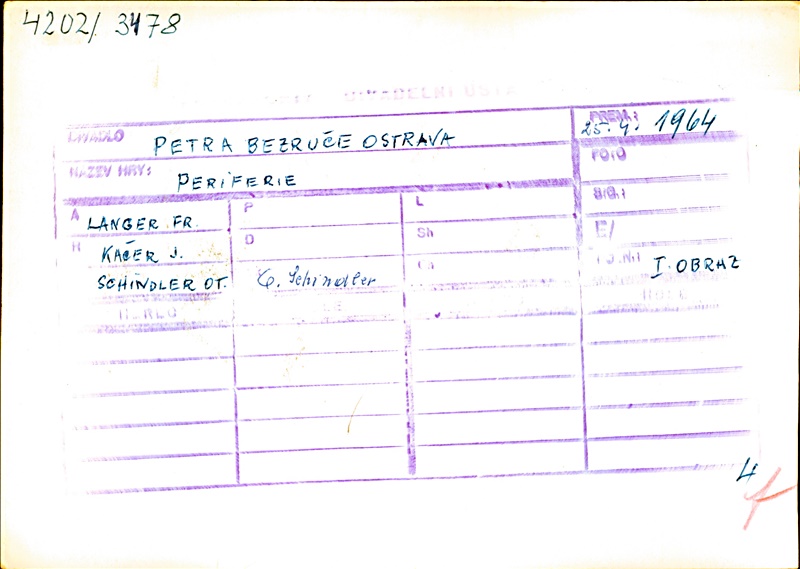 4202/ 3478
DIVADELNÍ ÚSTA
DIVADLO PETRA BEZRUČE OSTRAVA
PREM.: 25. 4. 1964
NÁZEV HRY: PERIFERIE
FOTO
A LANGER FR.
P
L
SIG.:
H KAČER J.
D
Sh
E/
SCHINDLER OT.
O. Schindler
I. OBRAZ
4